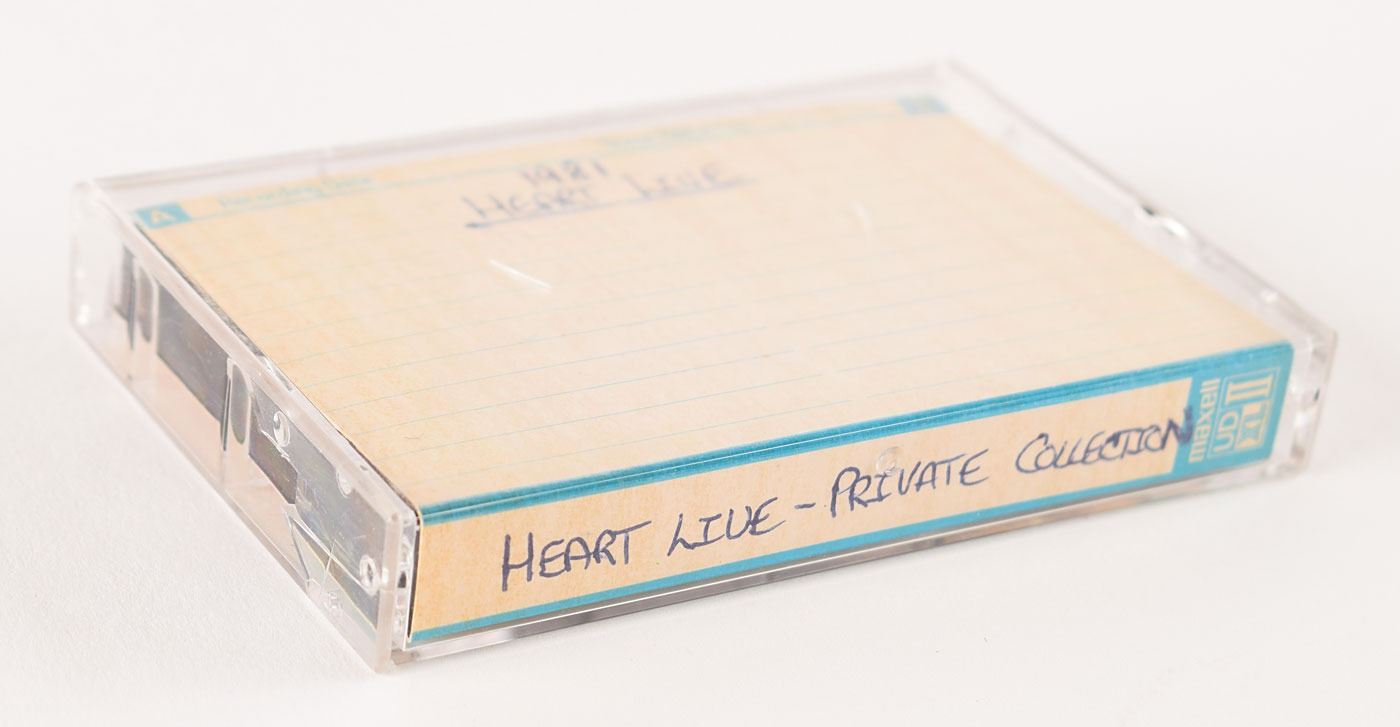 A Recording Date
1981
HEART LIVE
HEART LIVE - PRIVATE COLLECTION
maxell
UD
XLII